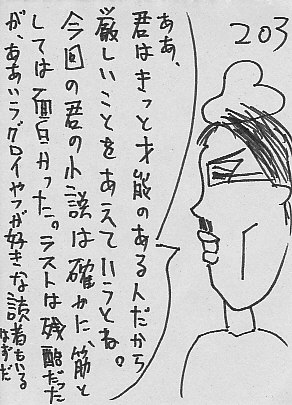 203
ああ、
君はきっと才能のある人だから
厳しいことをあえていうとね。
今回の君の小説は確かに、筋と
しては面白かった。ラストは残酷だった
が、ああいうグロイやつが好きな読者もいる
はずだ